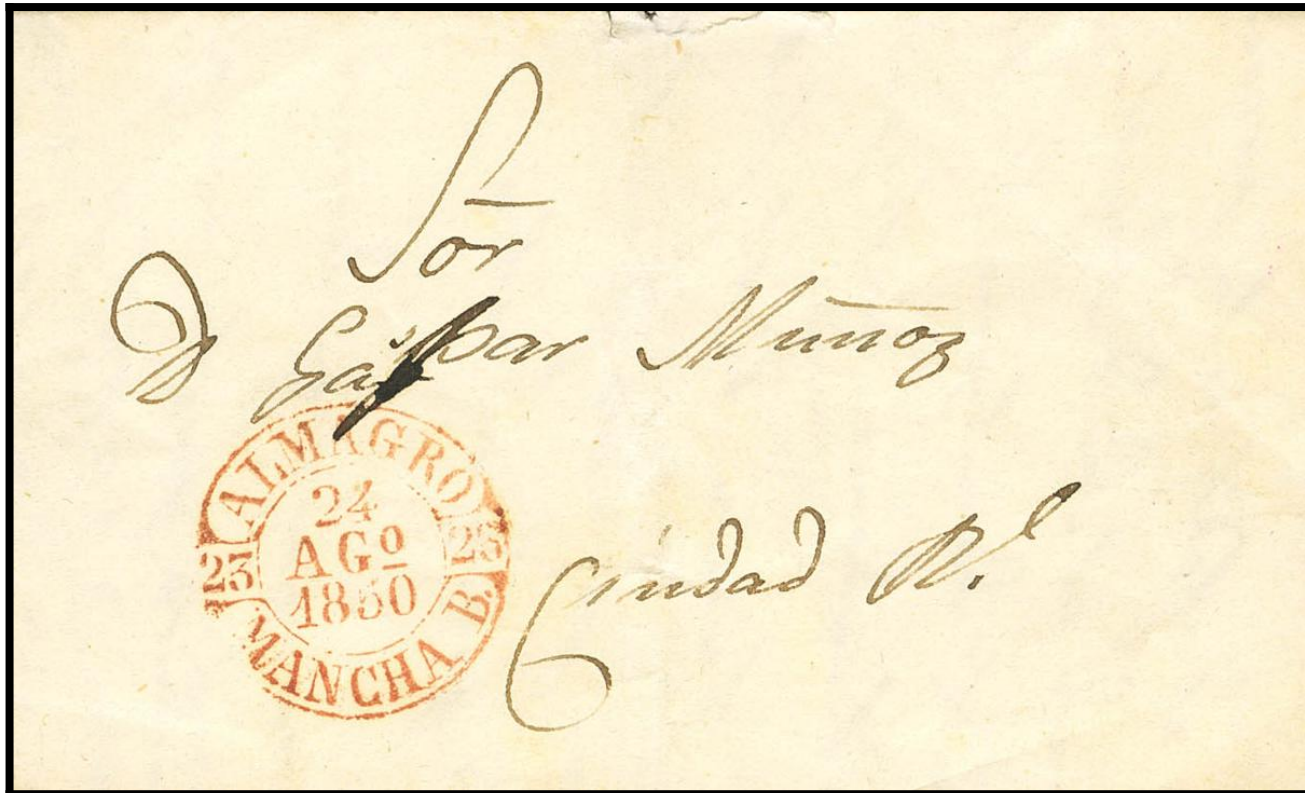 Sor
D Gaspar Muñoz
Ciudad Rl.
ALMAGRO
23 24 23
AGº
1850
MANCHA B.